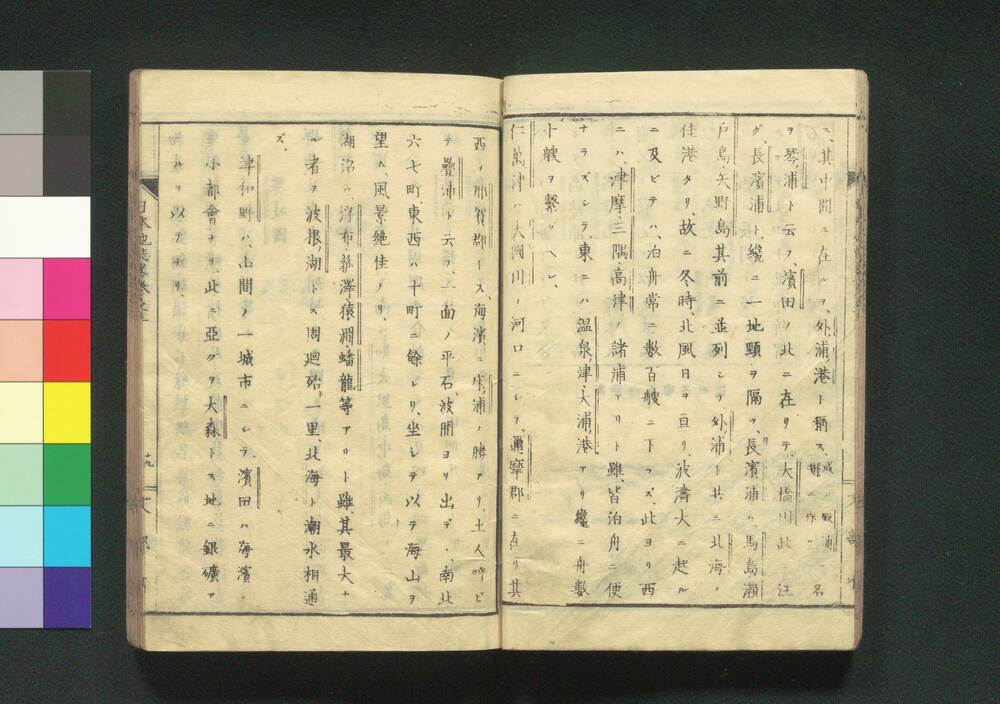 ニ、其中間ニ在ルヲ、外浦港ト稱ス、或ハ戚浦ニ作ル一名
ヲ琴浦ト云フ、濱田ノ北ニ在リテ、大橋川此ニ注
グ、長濱浦ト、纔ニ一地頸ヲ隔ツ、長濱浦ハ、馬島瀨
戸島矢野島其前ニ並列シテ外浦ト共ニ北海ノ
佳港タリ、故ニ冬時、北風日ヲ亘リ、波濤大ニ起ル
ニ及ビテハ、泊舟常ニ數百艘ニ下ラズ、此ヨリ西
ニハ、津摩、三隅、高津ノ諸浦アリト雖、皆泊舟ニ便
ナラズシテ東ニハ温泉津、大浦港アリ、纔ニ舟數
十艘ヲ繫グベシ、
仁萬津ハ大國川ノ河口ニシテ、邇摩郡ニ在リ其
西ノ那賀郡ニハ、海濱ニ床浦ノ勝アリ、土人呼ビ
テ疊浦ト云フ、一面ノ平石、波間ヨリ出デ、南北
六七町、東西八十町ニ餘レリ、坐シテ以テ海山ヲ
望ム、風景絶佳ナリ、
湖沼ハ、浮布、菰澤、猿淵、蟠龍等アリト雖、其最大ナ
ル者ヲ波根湖トス周廻殆一里、北海ト潮水相通
ズ、
津和野ハ、山間ノ一城市ニシテ、濱田ハ海濱ノ
小都會ナリ、此ニ亞グヲ大森トス地ニ銀礦ア
ルヲ以テナリ、
日本地誌略
十九
文部省